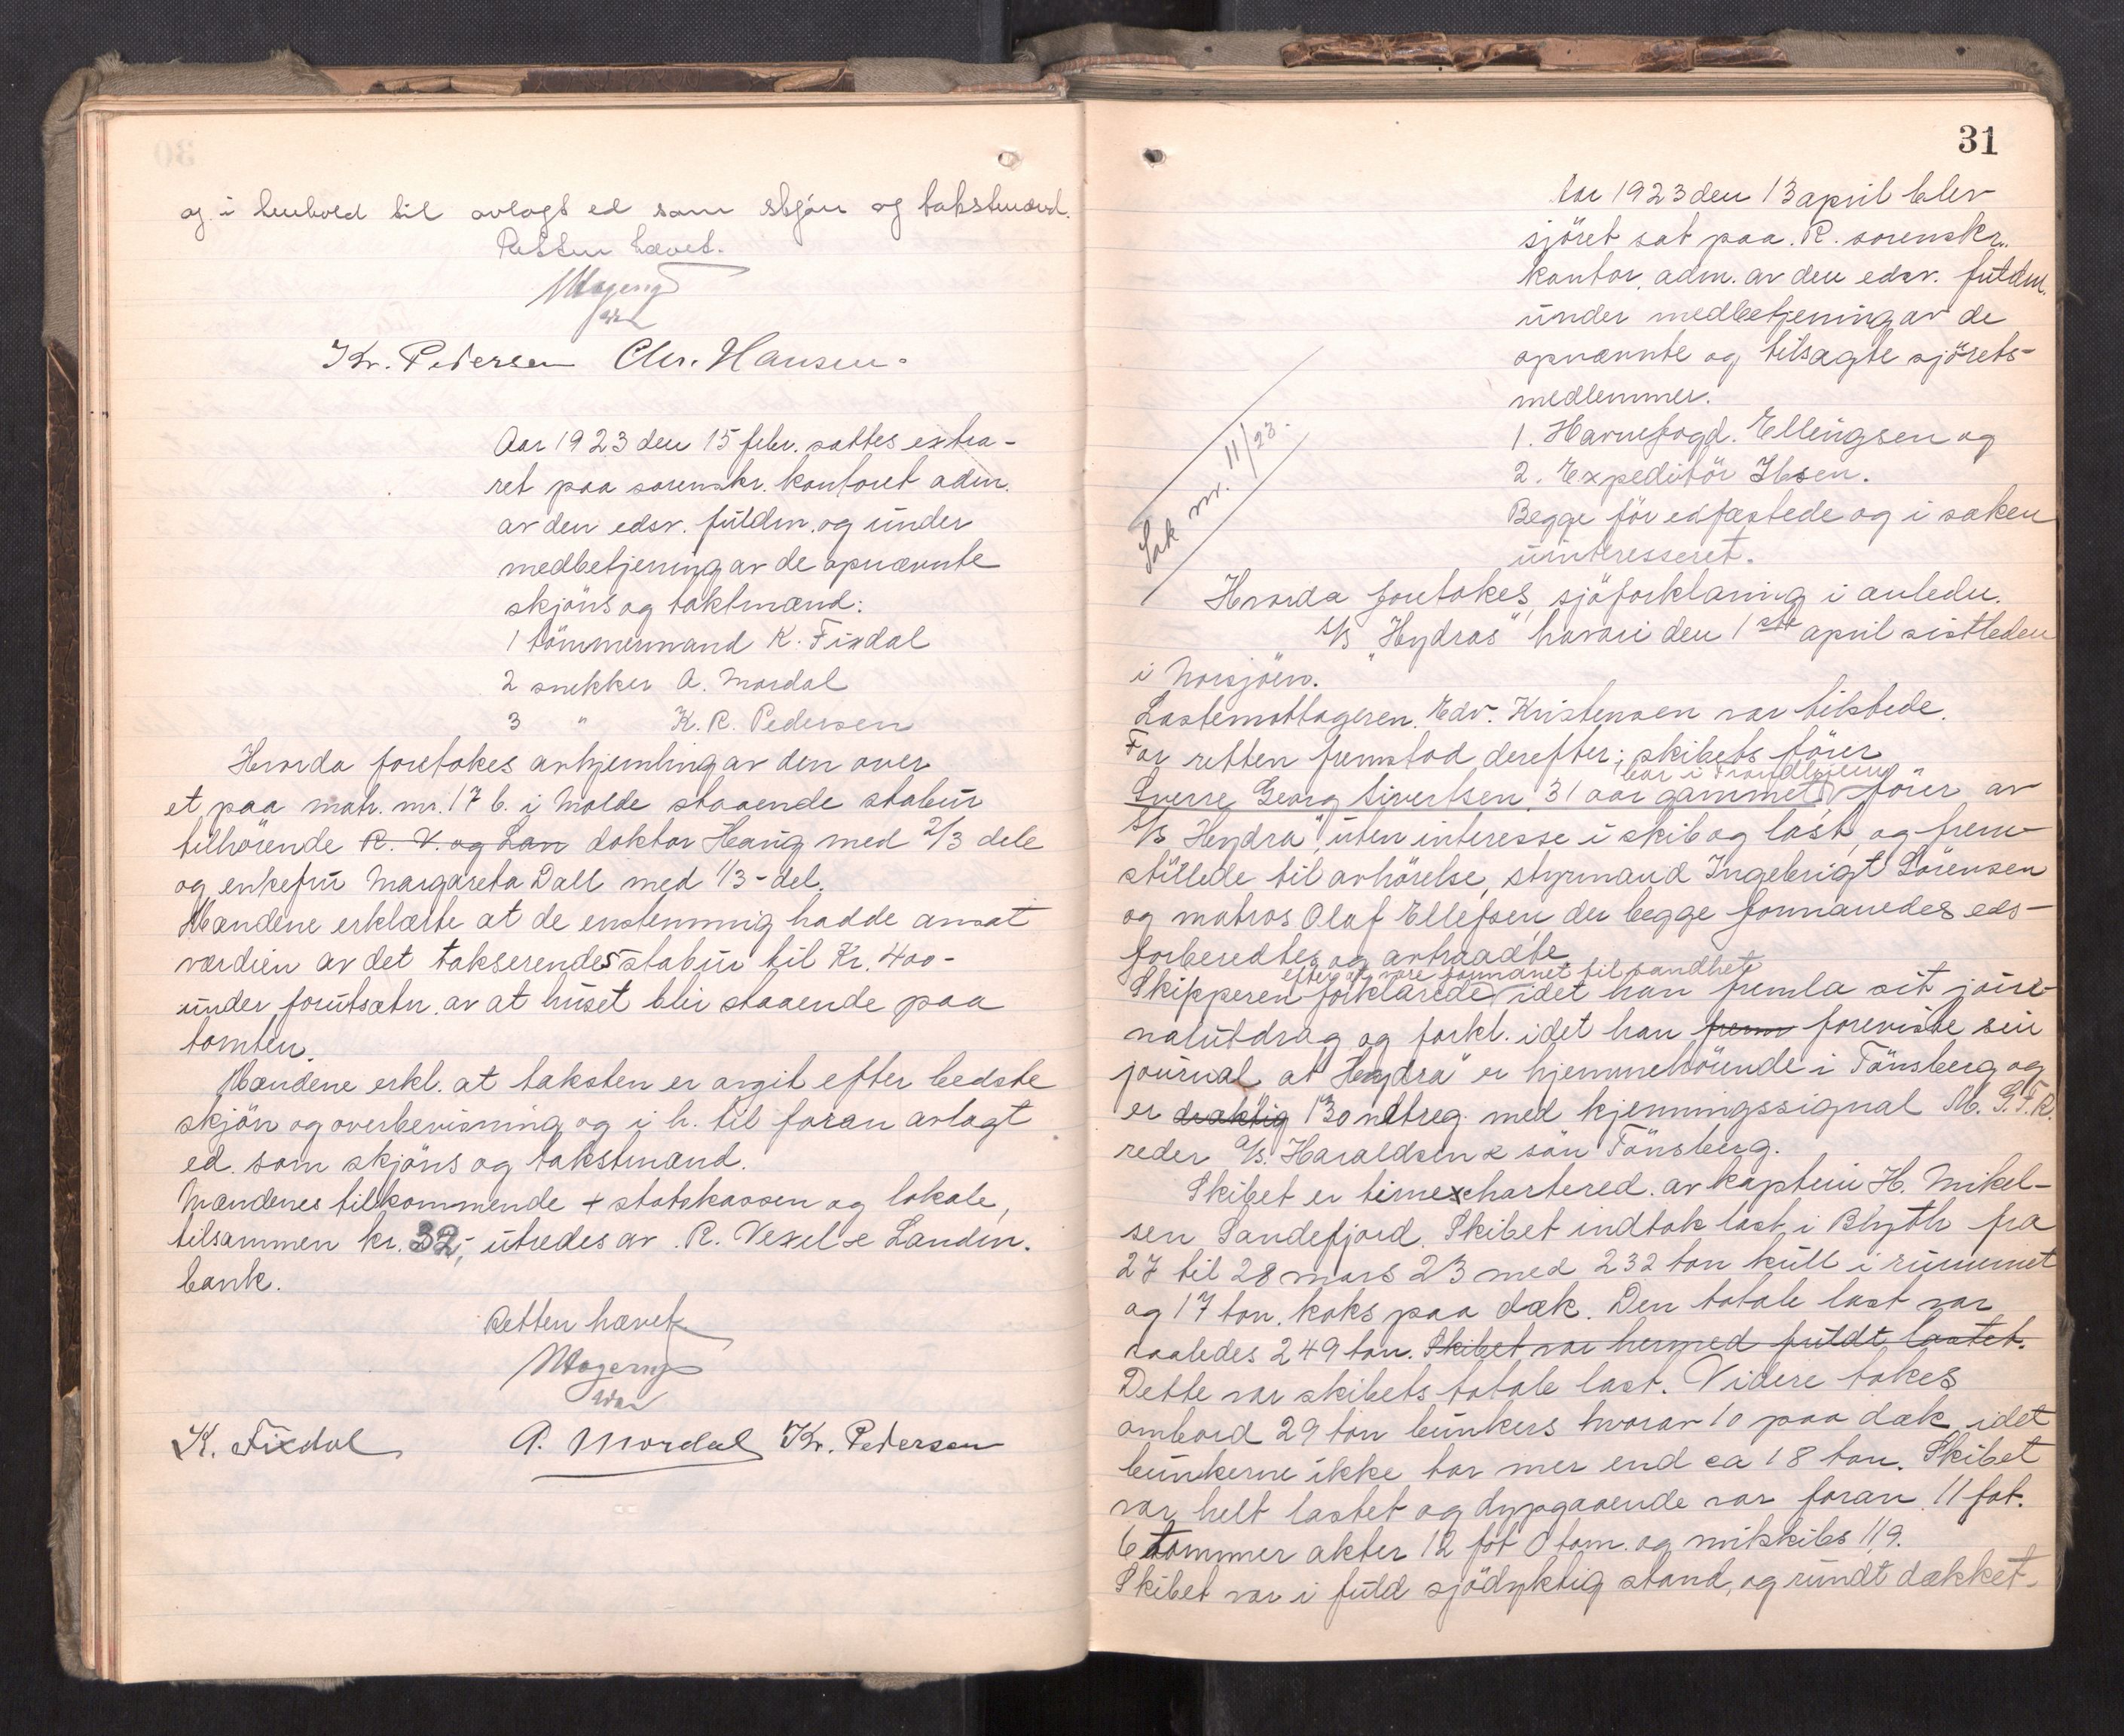 og i henhold til avlagt ed som skjøn og takstmænd.
Retten hævet.
Kr. Pedersen Chr. Hansen.
Aar 1923 den 15 febr. sattes extra-
ret paa sorenskr. kontoret adm.
av den edsv. fuldm. og under
medbetjening av de opnævnte
skjöns og taktmænd:
1 tömmermand K. Fixdal
2 snekker A. Mordal
3 " K. R. Pedersen
Hvorda foretokes avhjemling av den over
et paa matr. nr. 17 b. i Molde staaende stabur
tilhörende R. V. og Lan doktor Haug med 2/3 dele
og enkefru Margareta Dall med 1/3-del.
Mændene erklærte at de enstemmig hadde ansat
værdien av det takserendes stabur til Kr. 400-
under forutsætn. av at huset blir staaende paa
tomten.
Mændene erkl. at taksten er avgit efter bedste
skjön og overbevisning og i h. til foran avlagt
ed som skjöns og takstmænd.
Mændenes tilkommende + statskassen og lokale,
tilsammen kr. 32,- utredes av R. Vexel & Landm.
bank.
Retten hævet.
K. Fixdal A. Mordal Kr. Pedersen
31
Aar 1923 den 13 april blev
sjöret sat paa R. sorenskr.
kontor, adm. av den edsv. fuldm.
under medbetjening av de
opnævnte og tilsagte sjörets-
medlemmer.
1. Havnefogd. Ellingsen og
2. Expeditör Ibsen.
Begge för edfæstede og i saken
uinteresseret.
Sak nr. 11/23.
Hvorda foretokes sjöforklaring i anledn.
s/s "Hydras" havari den 1ste april sistleden
i Norsjöen.
Lastemottageren Edv. Kristensen var tilstede.
For retten fremstod derefter; skibets förer
bor i Trondhjem
Sverre Georg Sivertsen 31 aar gammel, förer av
s/s Hydra", uten interesse i skib og last, og frem-
stillede til avhörelse, styrmand Ingebrigt Sörensen
og matros Olaf Ellefsen, der begge formanedes eds-
forberedtes og avtraadte.
efter at være formanet til sandhet
Skipperen forklarede idet han fremla sit jour-
nalutdrag og forkl. idet han frem foreviste sin
journal at "Hydra" er hjemmehörende i Tönsberg og
er dræktig 130 nttreg. med kjenningssignal M. G. F. R.
reder A/S. Haraldsen & sön Tönsberg.
Skibet er timexchartered av kaptein H. Mikel-
sen Sandefjord. Skibet indtok last i Blyth fra
27 til 28 mars 23 med 232 ton kull i rummet
og 17 ton koks paa dæk. Den totale last var
saaledes 249 ton. Skibet var hermed fuldt lastet.
Dette var skibets totale last. Videre tokes
ombord 29 ton bunkers hvorav 10 paa dæk, idet
bunkerne ikke tar mer end ca 18 ton. Skibet
var helt lastet og dypgaaende var foran 11 fot.
6 tommer akter 12 fot 0 tom. og mitskibs 11,9.
Skibet var i fuld sjödyktig stand, og rundt dækket